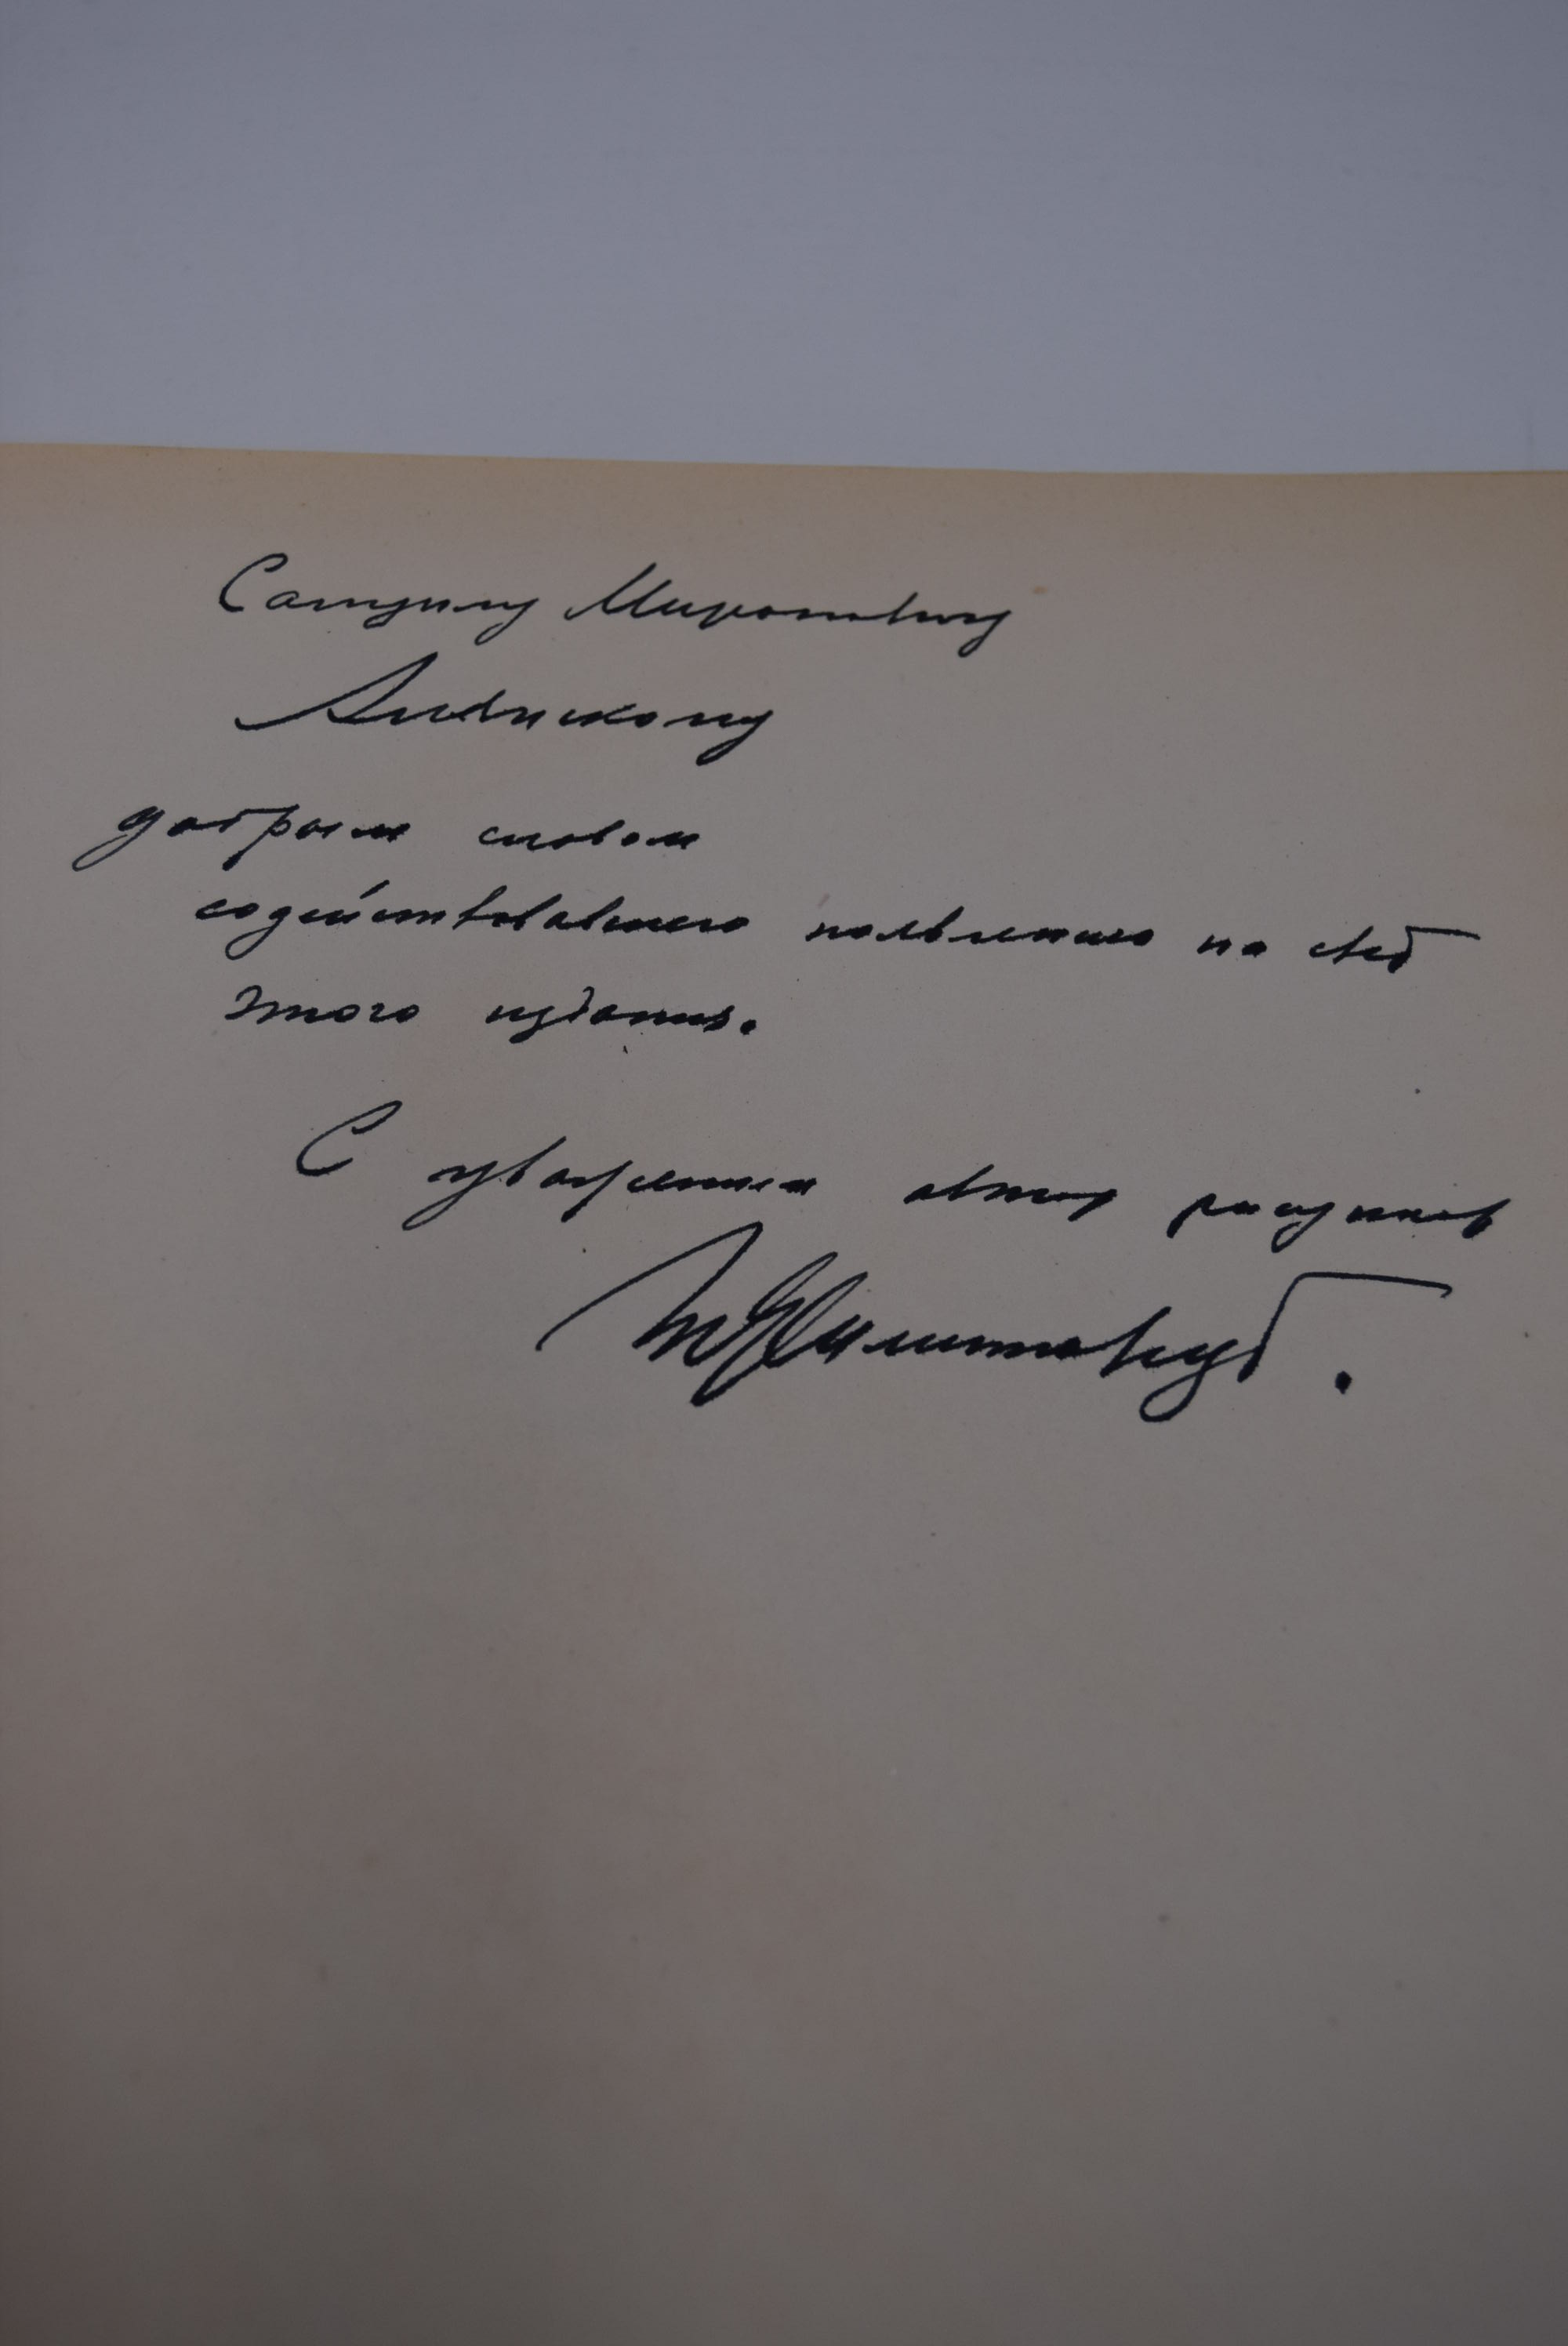 Самуилу Мироновичу
Алянскому
добрым словом
содействовавшего появлению на свет
этого издания.
С уважением автор рисунков